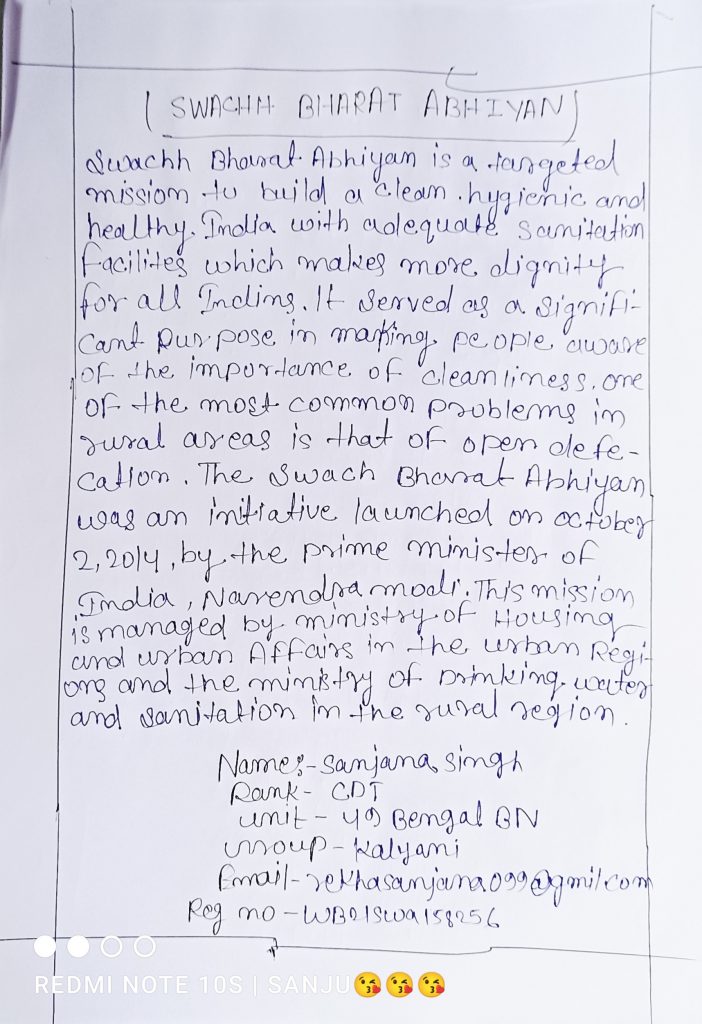 ( SWACHH BHARAT ABHIYAN )
Swachh Bharat Abhiyan is a targeted
mission to build a clean. hygienic and
healthy. India with adequate sanitation
facilites which makes more dignity
for all Indins. It served as a signifi-
cant purpose in making people aware
of the importance of cleanliness. one
of the most common problems in
rural areas is that of open defe-
cation. The Swach Bharat Abhiyan
was an initiative launched on october
2, 2014, by the prime minister of
India, Narendra modi. This mission
is managed by ministry of Housing
and urban Affairs in the urban Regi-
ons and the ministry of Drinking water
and sanitation in the rural region.
Name:- Sanjana Singh
Rank- CDT
unit - 49 Bengal BN
Group - Kalyani
Email- rekhasanjana099@gmil.com
Reg no - WB21SWA158256
REDMI NOTE 10S | SANJU😘😘😘